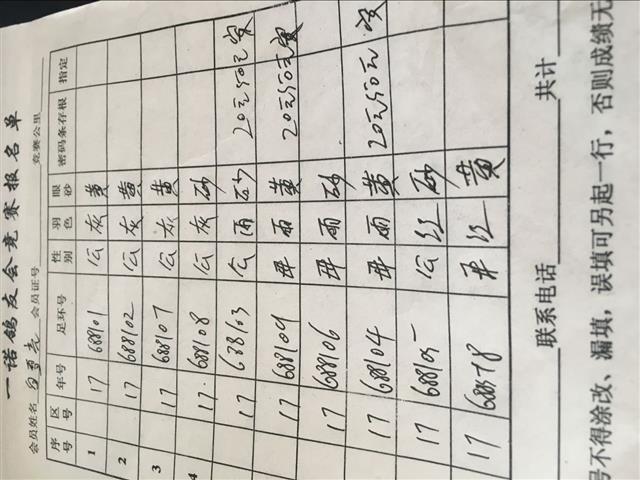 一诺鸽友会竞赛报名单
会员姓名 会员证号 竞赛公里
序号 区号 年号 足环号 性别 羽色 眼砂 密码条存根 指定
1 17 688101 公 灰 黄
2 17 688102 公 灰 黄
3 17 688107 公 灰 黄
4 17 688108 公 灰 砂
17 688103 公 雨 砂 20元50元奖
17 688109 母 雨 黄 20元50元奖
17 688106 母 雨 砂
17 688104 母 雨 黄 20元50元奖
17 688105 公 红 砂
17 母 红 黄
联系电话 共计
号不得涂改、漏填，误填可另起一行，否则成绩无